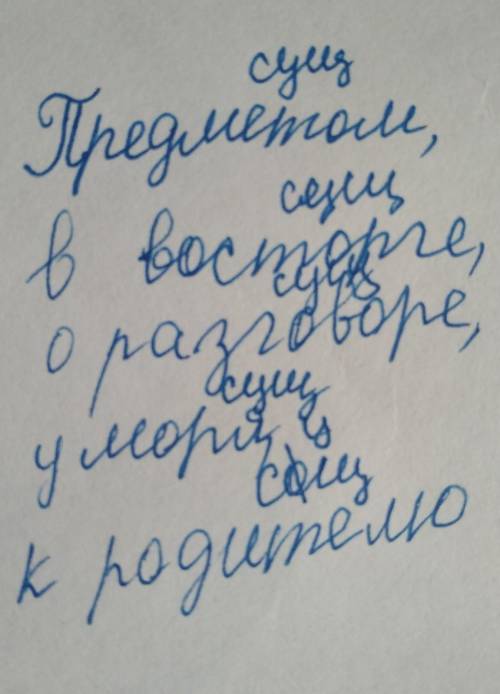 сущ
Предметом,
сущ
в восторге,
сущ
о разговоре,
сущ
у моря,
сущ
к родителю